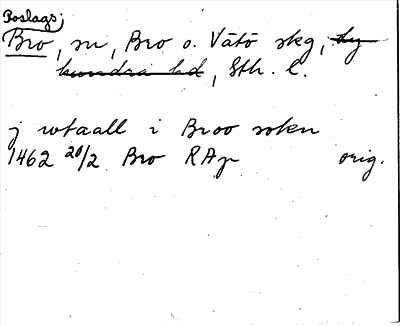 Poslags,
Bro, sn, Bro o. Vätö skg, ly
hundra hd, Sth. l.
j wtaall i Broo sokn
1462 20/2 Bro RAp orig.